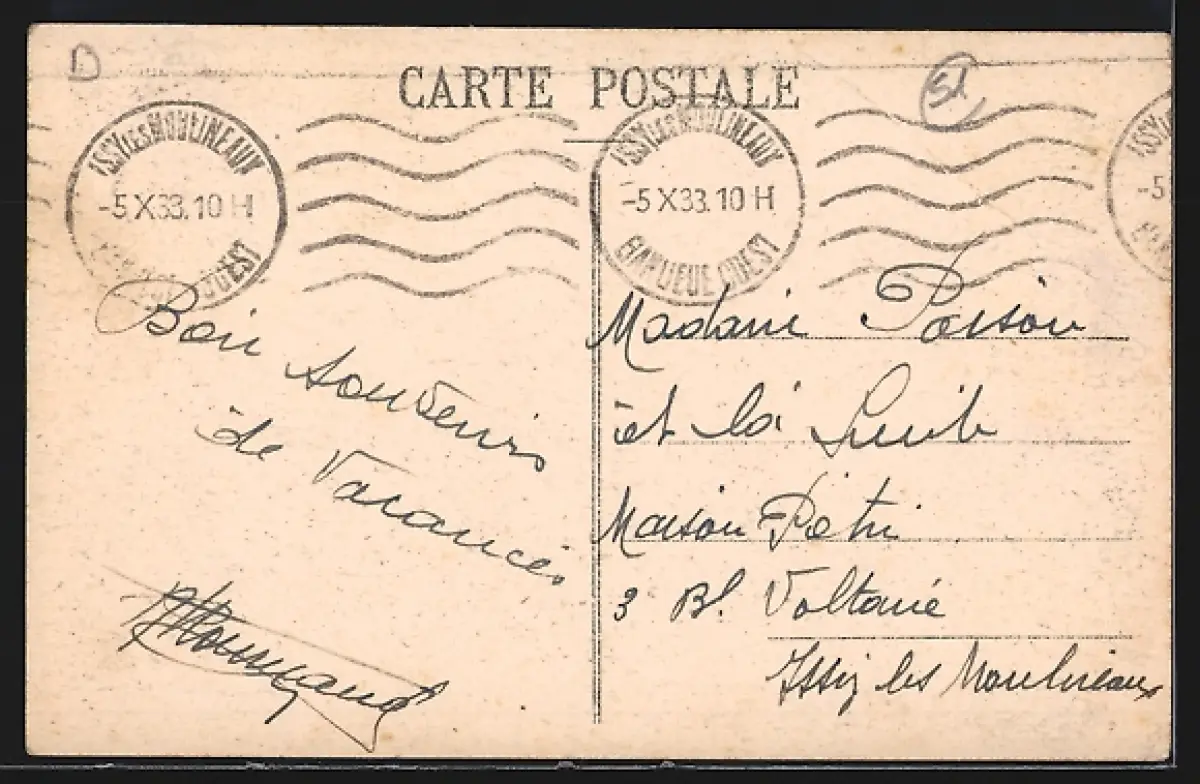 D
CARTE POSTALE
51
ISSY LES MOULINEAUX
-5 X 33. 10 H
OUEST
ISSY LES MOULINEAUX
-5 X 33. 10 H
BANLIEUE OUEST
ISSY
-5
Bon souvenir
de Vacances
Madame Poison
et la
Maison Pétri
3 Bd. Voltaire
Issy les Moulineaux